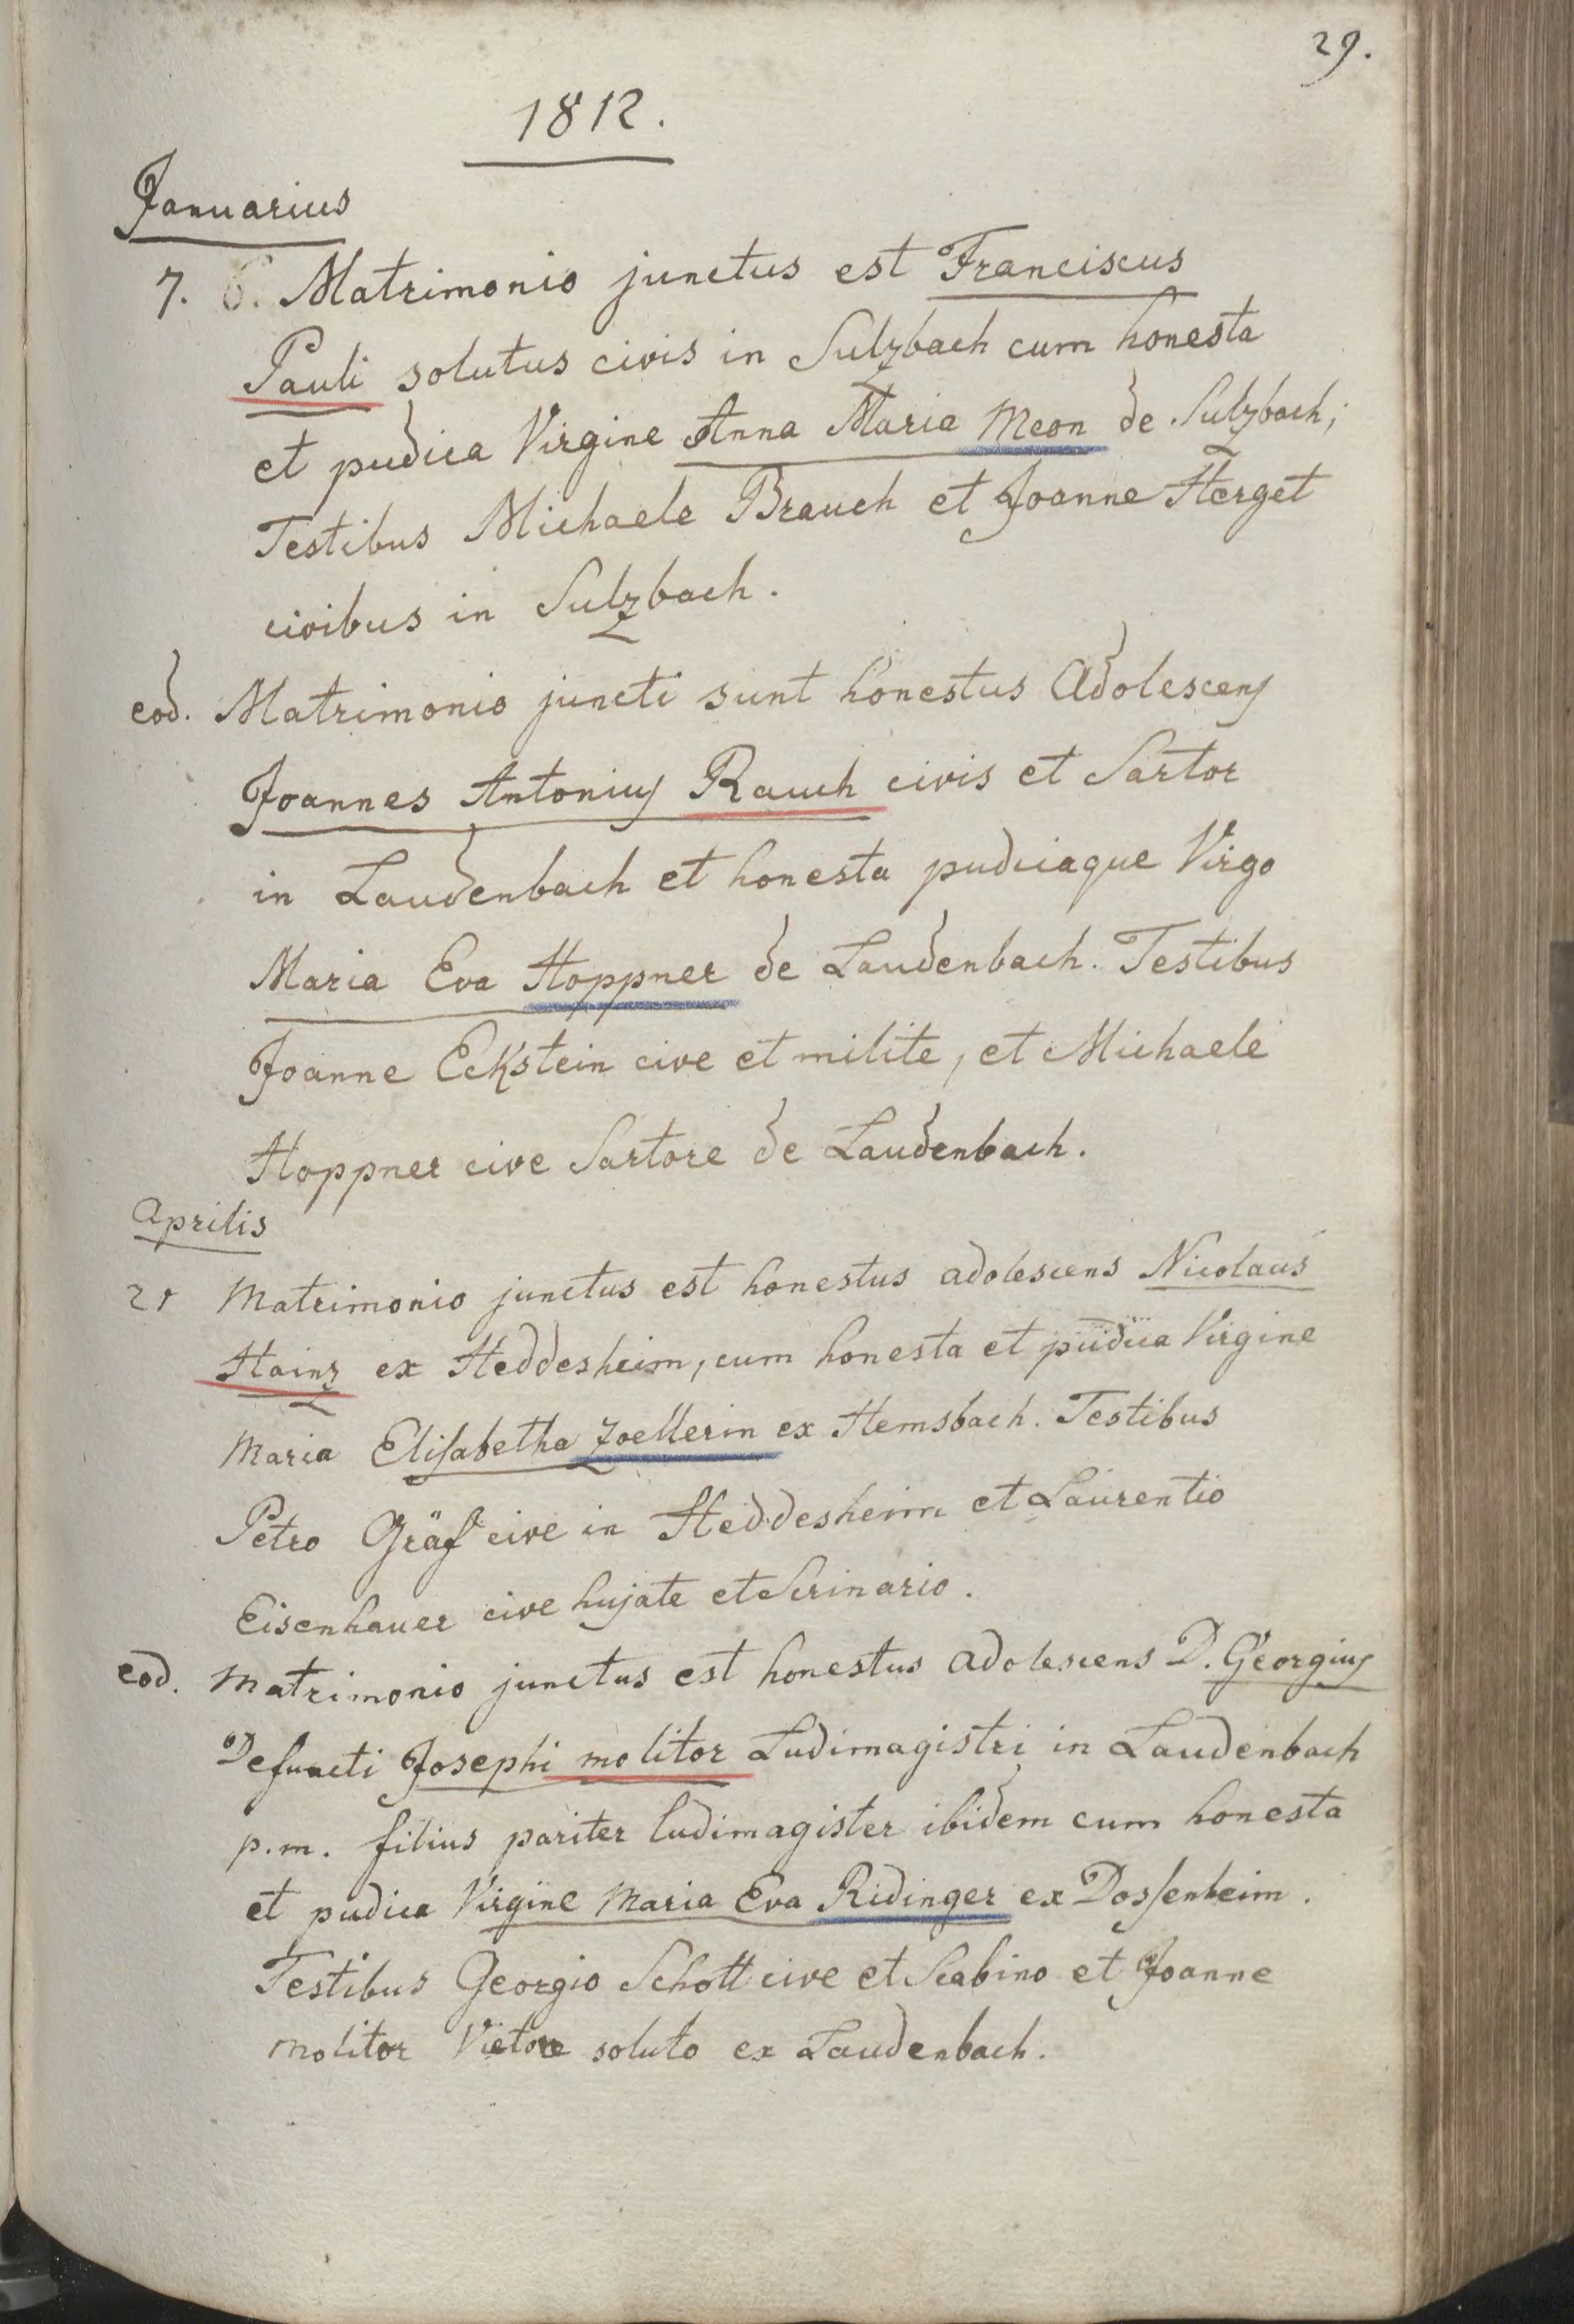 29.
1812.
Januarius
7. 6. Matrimonio junctus est Franciscus
Pauli solutus civis in Sulzbach cum honesta
et pudica Virgine Anna Maria Meon de Sulzbach;
Testibus Michaele Brauch et Joanne Herget
civibus in Sulzbach.
eod. Matrimonio juncti sunt honestus Adolescens
Joannes Antonius Rauch civis et Sartor
in Laudenbach et honesta pudicaque Virgo
Maria Eva Hoppner de Laudenbach. Testibus
Joanne Eckstein cive et milite, et Michaele
Hoppner cive Sartore de Laudenbach.
Aprilis
21 Matrimonio junctus est honestus adolescens Nicolaus
Hainz ex Heddesheim, cum honesta et pudica Virgine
Maria Elisabetha Zoellerin ex Hemsbach. Testibus
Petro Gräf cive in Heddesheim et Laurentio
Eisenhauer cive hujate et Scrinario.
eod. Matrimonio junctus est honestus adolescens D. Georgius
Defuncti Josephi molitor Ludimagistri in Laudenbach
p.m. filius pariter ludimagister ibidem cum honesta
et pudica Virgine Maria Eva Ridinger ex Dossenheim.
Testibus Georgio Schott cive et Scabino et Joanne
Molitor Vietore soluto ex Laudenbach.